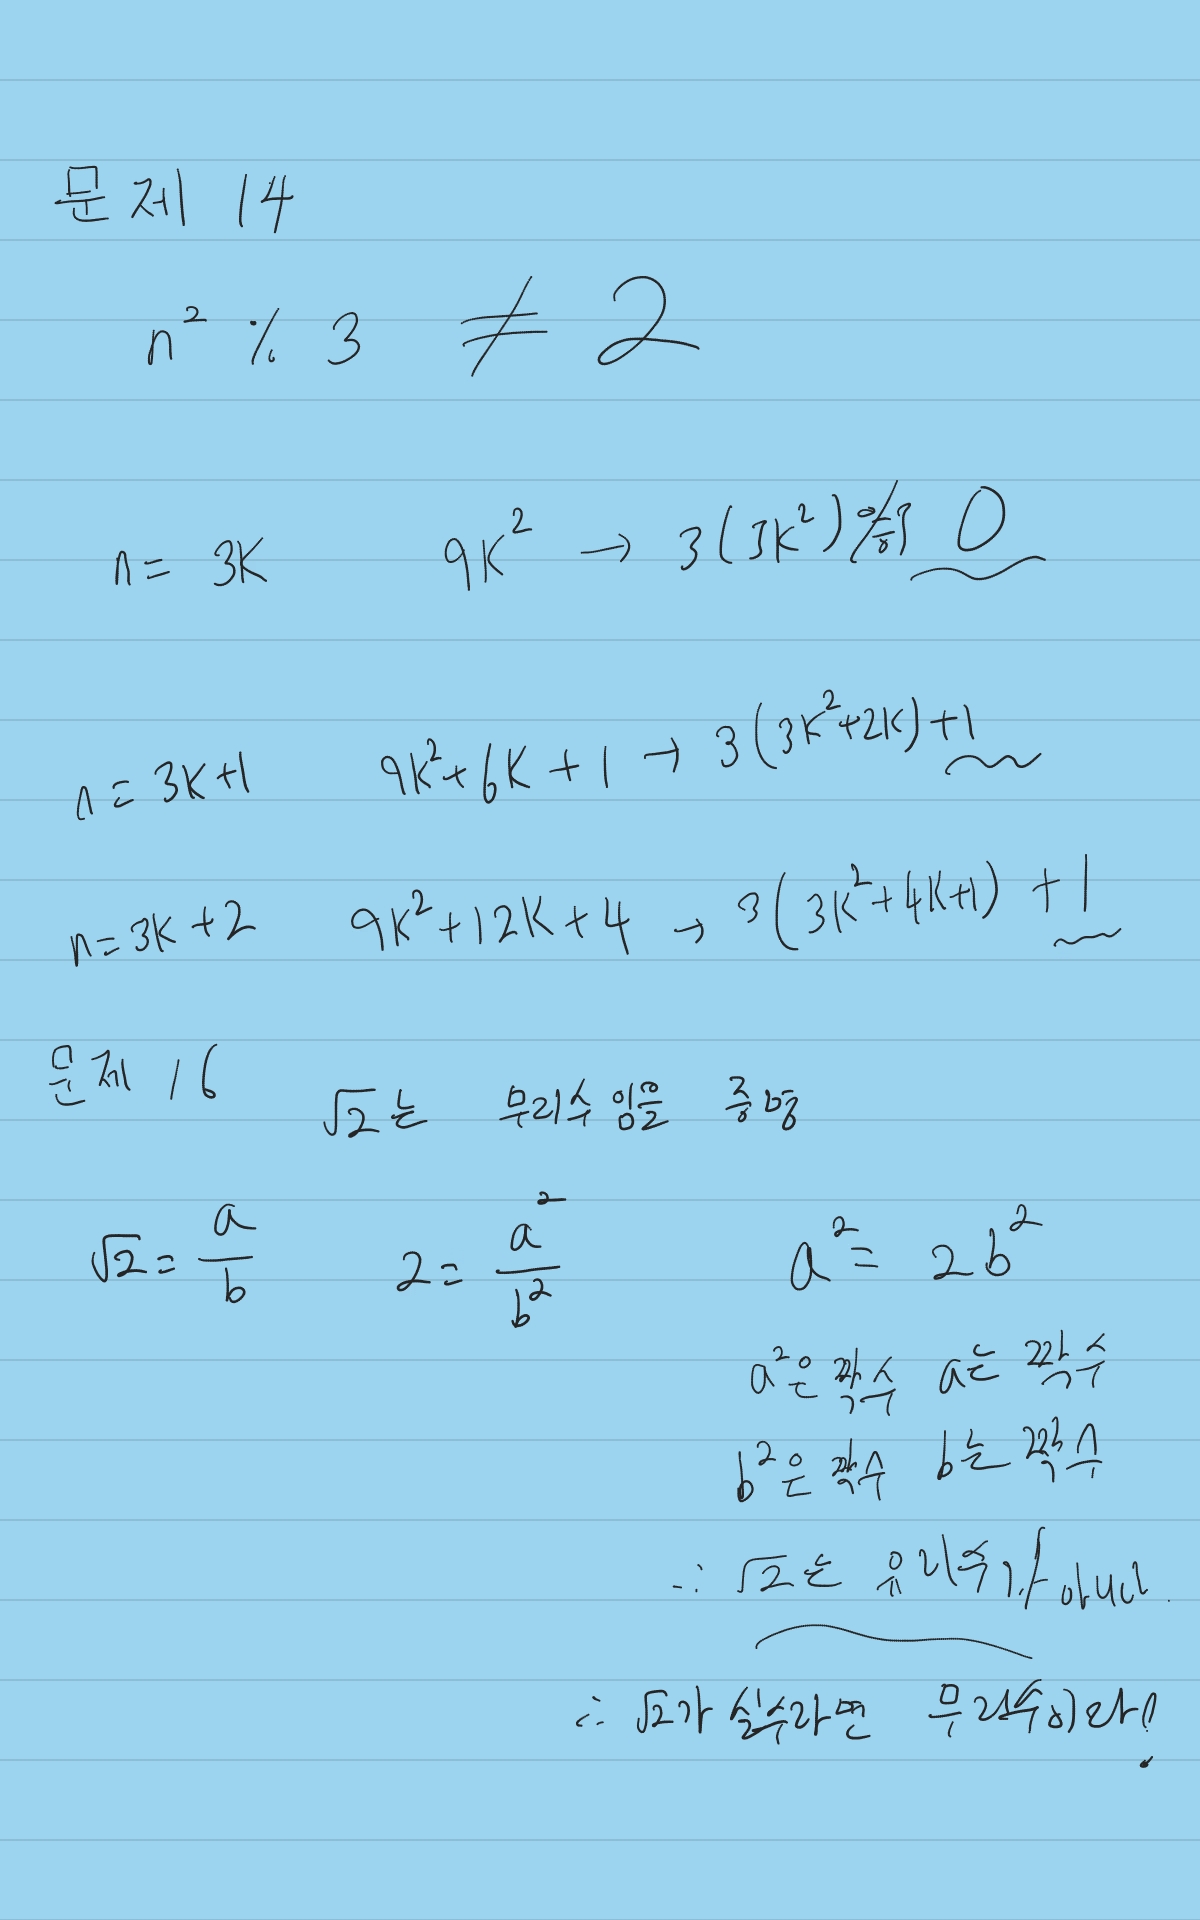 문제 14
n² % 3 ≠ 2
n = 3K 9K² → 3(3K²) 0
n = 3K+1 9K²+6K+1 → 3(3K²+2K)+1
n=3K+2 9K²+12K+4 → 3(3K²+4K+1) +1
문제 16
√2는 무리수임을 증명
√2 = a/b 2 = a²/b² a² = 2b²
a²은 짝수 a는 짝수
b²은 짝수 b는 짝수
∴ √2는 유리수가 아니다.
∴ √2가 실수라면 무리수이라!